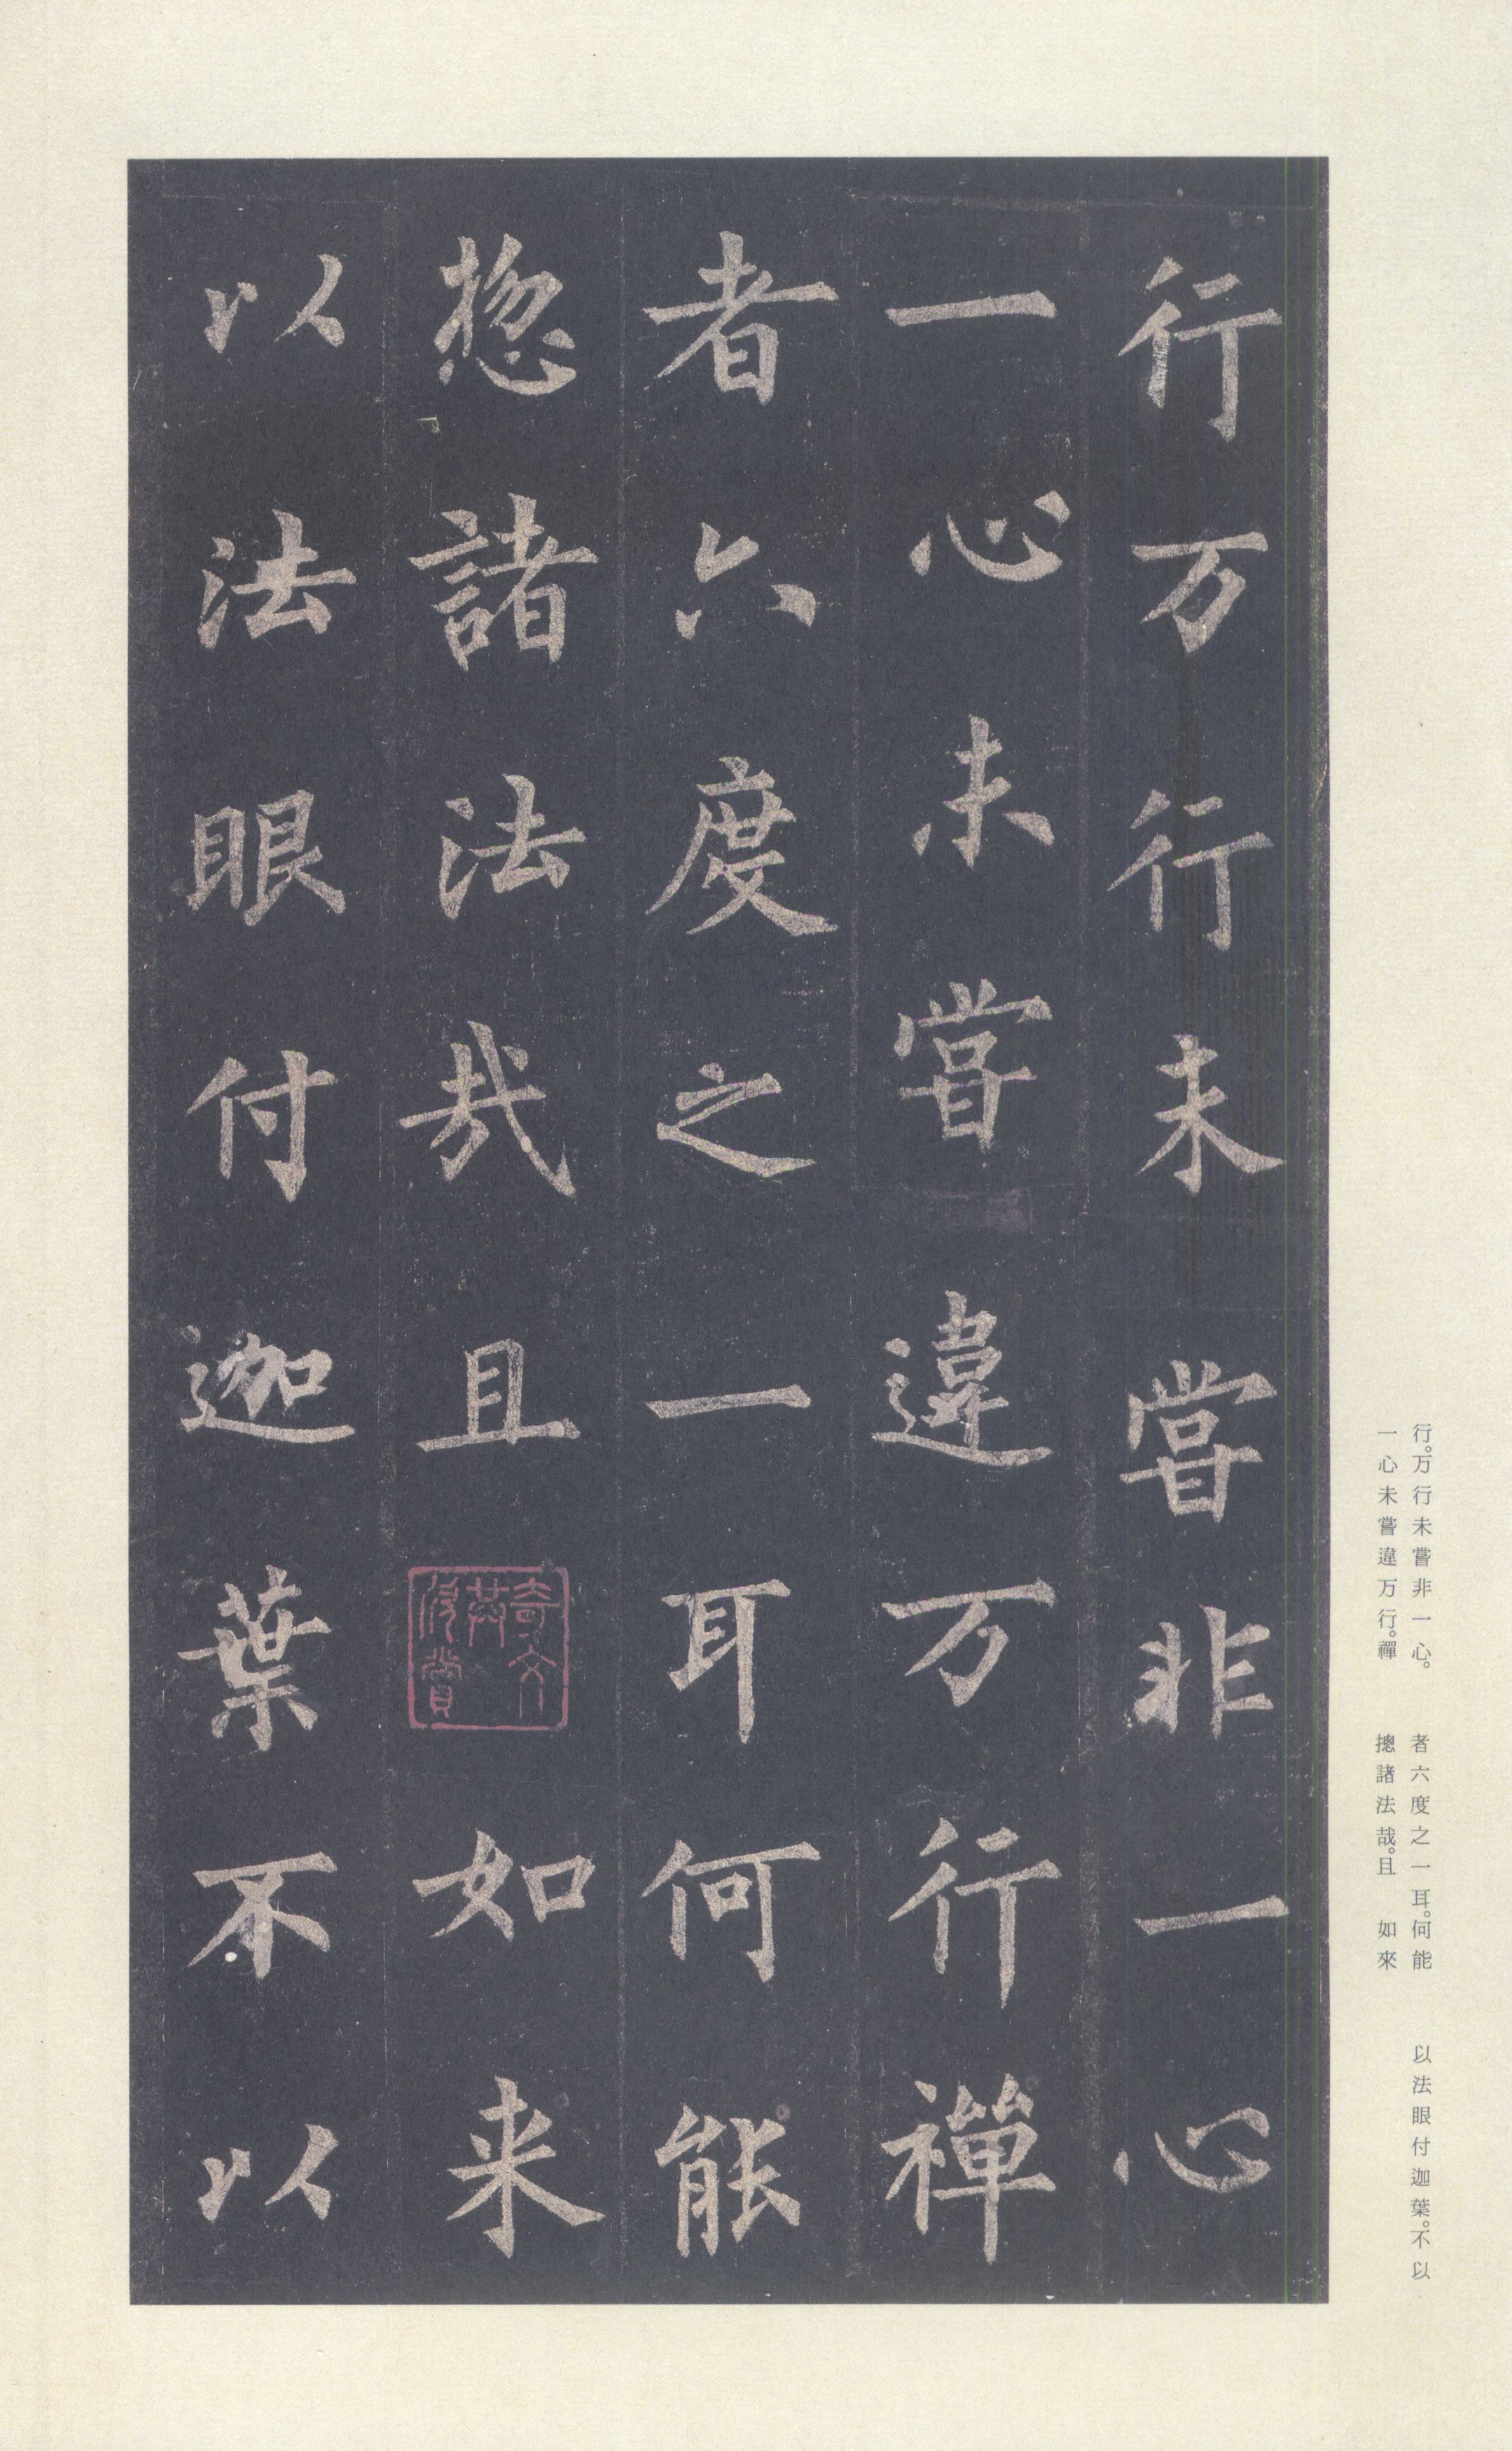 行万行未嘗非一心
一心未嘗違万行禪
者六度之一耳何能
揔諸法㢤且如来
以法眼付迦葉不以
奇文共欣賞
行。万行未嘗非一心。
一心未嘗違万行。禪
者六度之一耳。何能
摠諸法哉。且 如來
以法眼付迦葉。不以